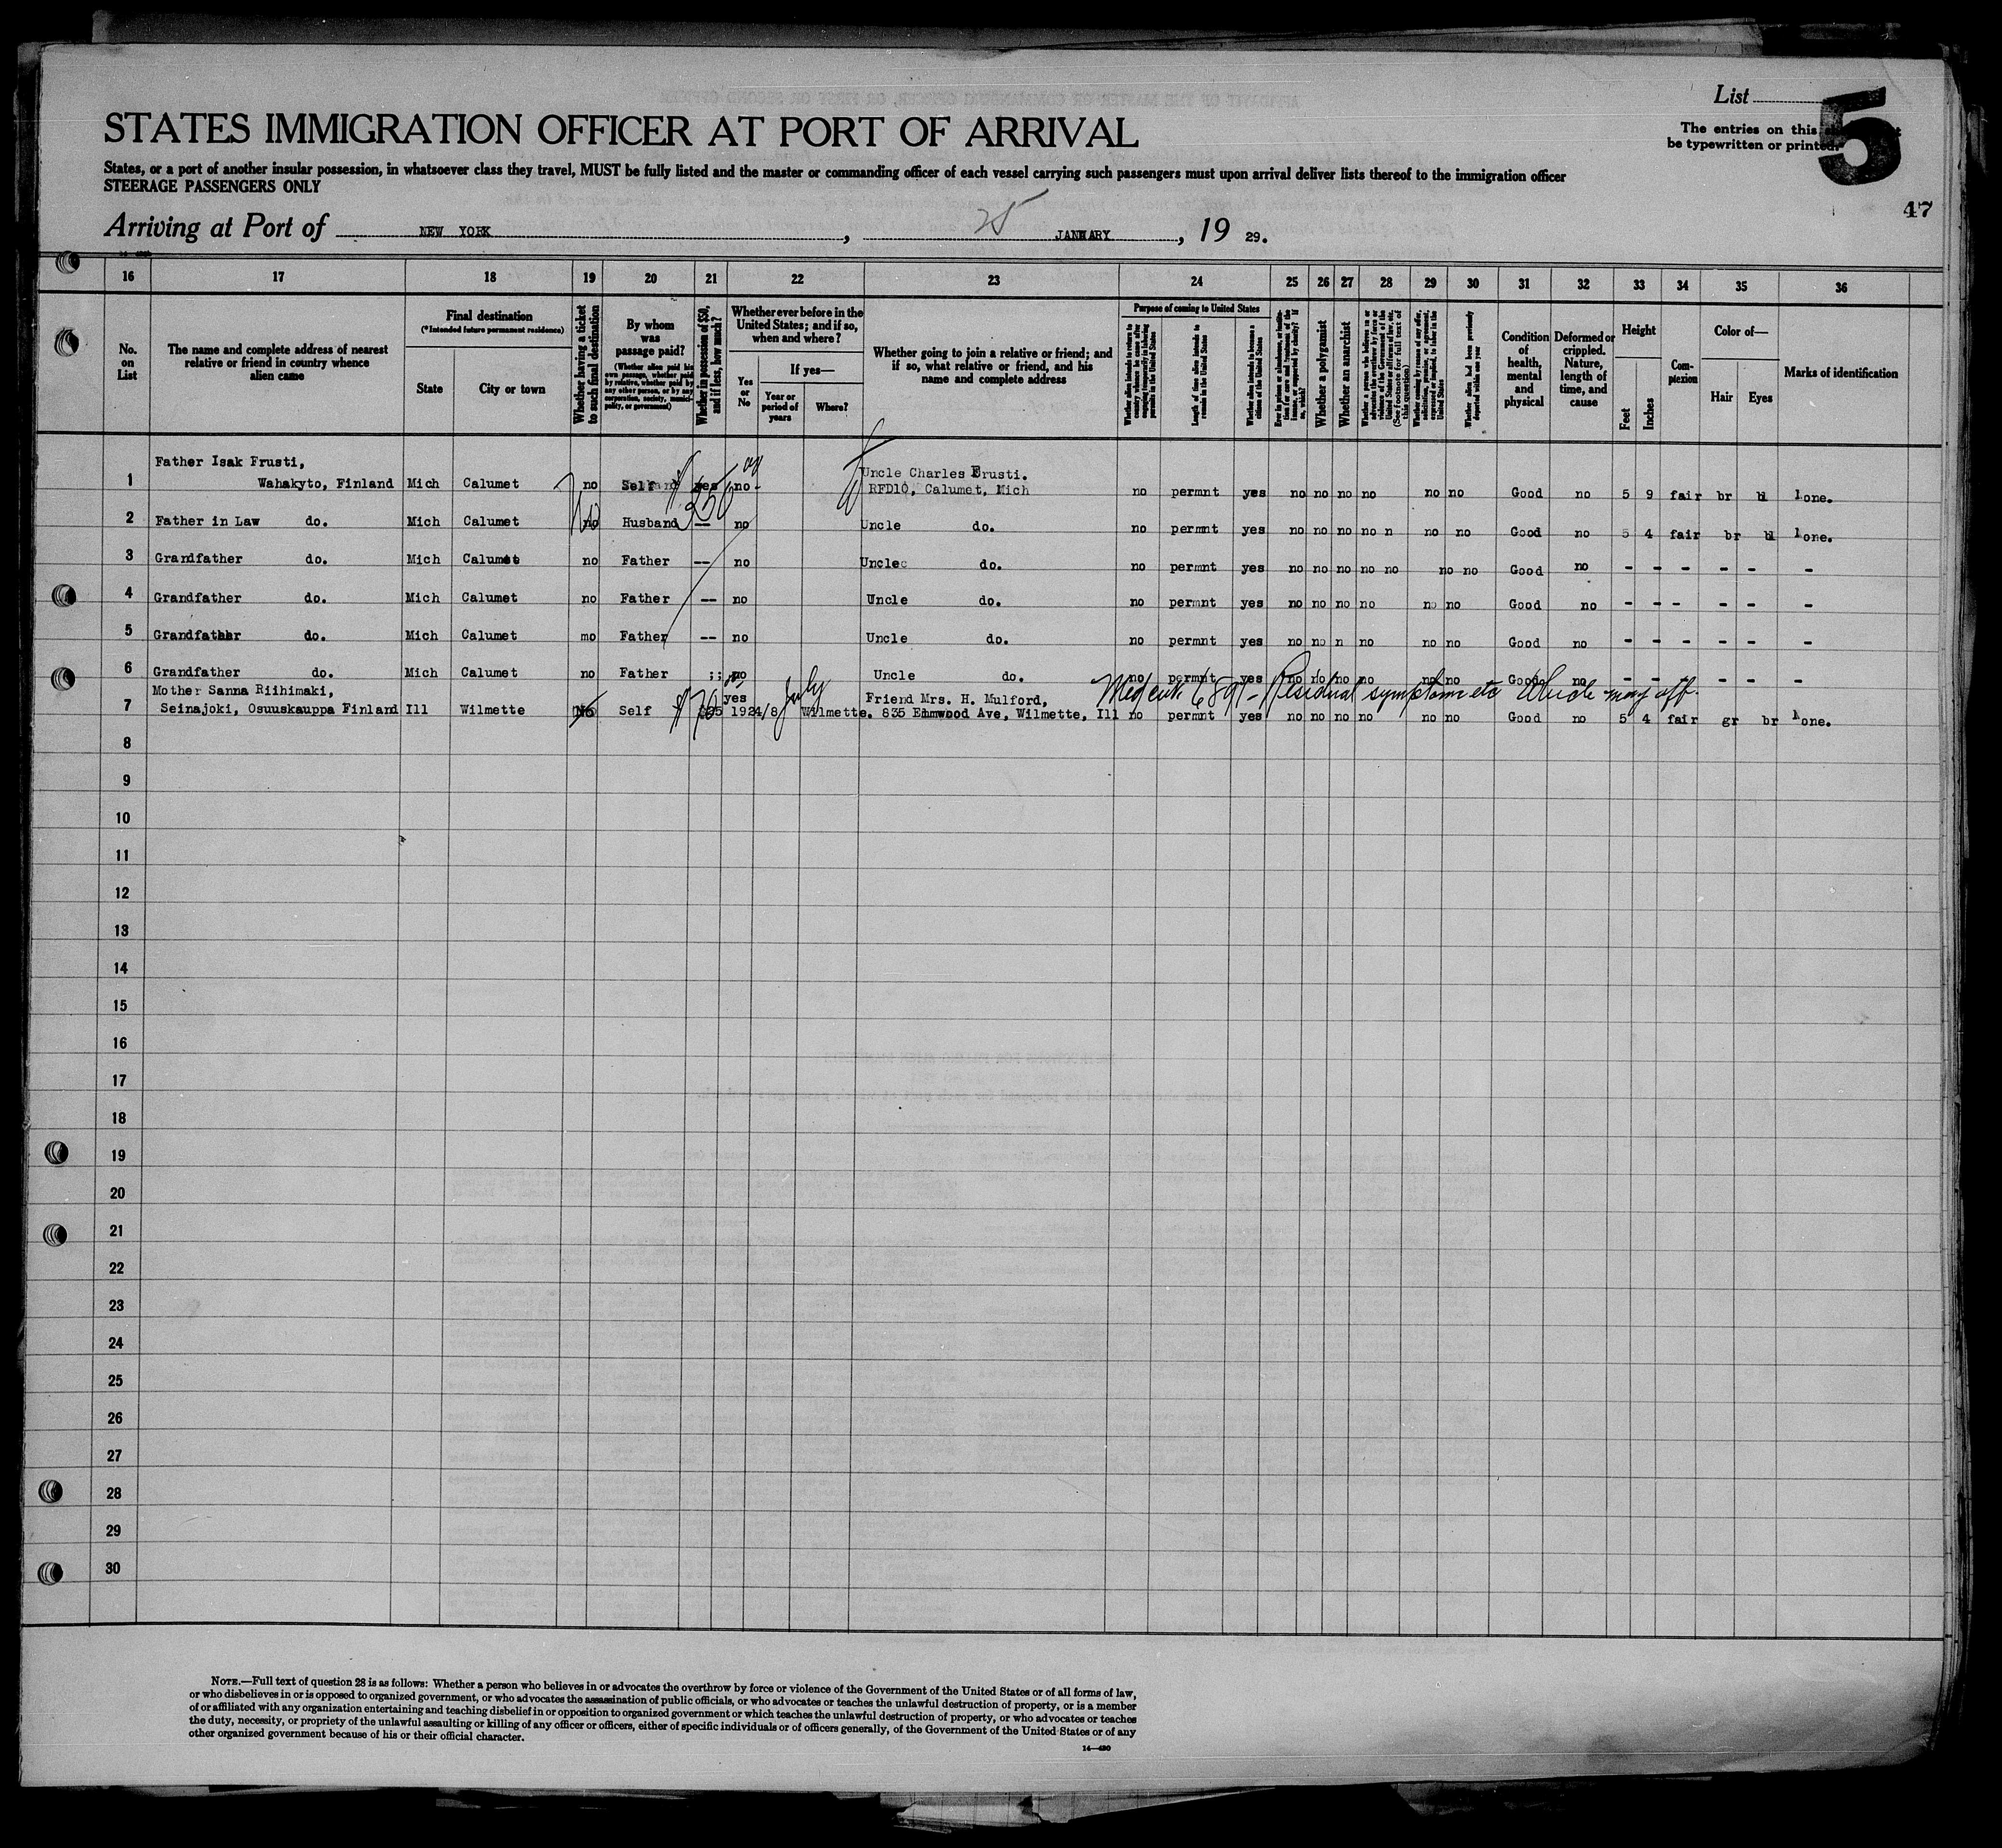 List
5
The entries on this
be typewritten or printed.
STATES IMMIGRATION OFFICER AT PORT OF ARRIVAL
States, or a port of another insular possession, in whatsoever class they travel, MUST be fully listed and the master or commanding officer of each vessel carrying such passengers must upon arrival deliver lists thereof to the immigration officer
STEERAGE PASSENGERS ONLY
47
Arriving at Port of NEW YORK, 25 JANUARY, 19 29.
16 17 18 19 20 21 22 23 24 25 26 27 28 29 30 31 32 33 34 35 36
No. on List
The name and complete address of nearest relative or friend in country whence alien came
Final destination
(*Intended future permanent residence)
State
City or town
Whether having a ticket to such final destination
By whom was passage paid?
(Whether alien paid his own passage, whether paid by relative, whether paid by any other person, or by any corporation, society, municipality, or government)
Whether in possession of $50, and if less, how much?
Whether ever before in the United States; and if so, when and where?
Yes or No
If yes—
Year or period of years
Where?
Whether going to join a relative or friend; and if so, what relative or friend, and his name and complete address
Purpose of coming to United States
Whether alien intends to return to country whence he came after engaging temporarily in laboring pursuits in the United States
Length of time alien intends to remain in the United States
Whether alien intends to become a citizen of the United States
Whether a polygamist
Whether an anarchist
Whether alien had been previously deported within one year
Condition of health, mental and physical
Deformed or crippled. Nature, length of time, and cause
Height
Feet
Inches
Complexion
Color of—
Hair
Eyes
Marks of identification
Father Isak Frusti,
1 Wahakyto, Finland Mich Calumet no Self yes no Uncle Charles Frusti. RFD10, Calumet, Mich no permnt yes no no no no no no Good no 5 9 fair br bl
2 Father in Law do. Mich Calumet no Husband — no Uncle do. no permnt yes no no no no n no no Good no 5 4 fair br bl
3 Grandfather do. Mich Calumet no Father -- no Uncle do. no permnt yes no no no no no no no Good no - - - - - -
4 Grandfather do. Mich Calumet no Father -- no Uncle do. no permnt yes no no no no no no Good no - - - - - -
5 Grandfather do. Mich Calumet mo Father -- no Uncle do. no permnt yes no no n no no no Good no - - - - - -
6 Grandfather do. Mich Calumet no Father ;; no Uncle do. no permnt yes no no no no no no Good no - - - - - -
Mother Sanna Riihimaki, yes July Friend Mrs. H. Mulford, Residual symptoms etc Which may aff.
7 Seinajoki, Osuuskauppa Finland Ill Wilmette No Self 1924/8 Wilmette. 835 Ave, Wilmette, Ill no permnt yes no no no no no no Good no 5 4 fair gr br
8
9
10
11
12
13
14
15
16
17
18
19
20
21
22
23
24
25
26
27
28
29
30
NOTE.—Full text of question 28 is as follows: Whether a person who believes in or advocates the overthrow by force or violence of the Government of the United States or of all forms of law,
or who disbelieves in or is opposed to organized government, or who advocates the assassination of public officials, or who advocates or teaches the unlawful destruction of property, or is a member
of or affiliated with any organization entertaining and teaching disbelief in or opposition to organized government or which teaches the unlawful destruction of property, or who advocates or teaches
the duty, necessity, or propriety of the unlawful assaulting or killing of any officer or officers, either of specific individuals or of officers generally, of the Government of the United States or of any
other organized government because of his or their official character.
14—480